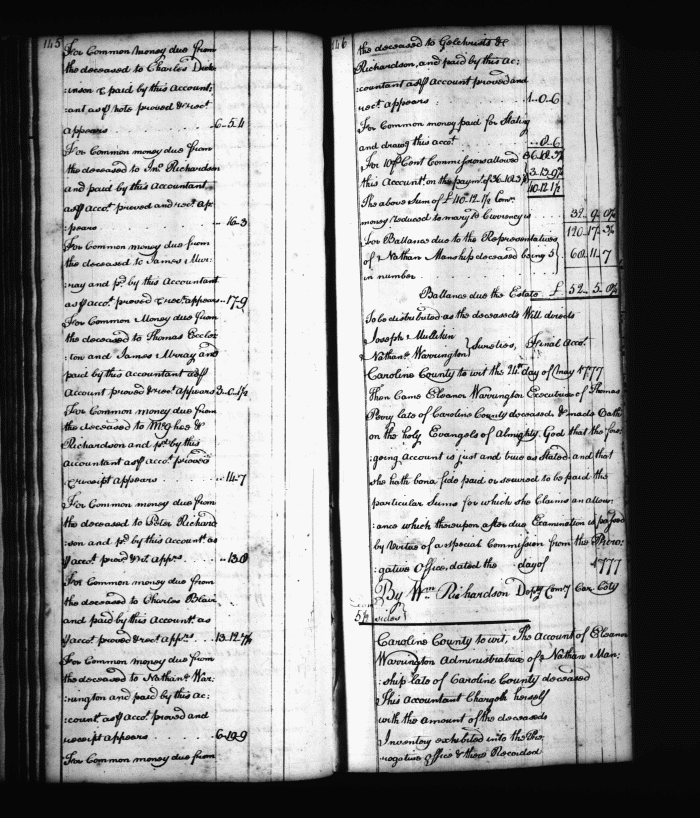 145
For Common money due from
the deceased to Charles Dick
:inson & paid by this Account:
:ant as pr note proved & rect
appears 6-5-4
For Common money due from
the deceased to Jno. Richardson
and paid by this Accountant
as pr Acct. proved and rect. Ap
:pears 16-3
For Common money due from
the deceased to James Mur:
:ray and pd. by this Accountant
as pr acct. proved & rect. appears 17-9
For Common Money due from
the deceased to Thomas Eccles
:ton and James Murray and
paid by this Accountant as pr
Account proved & rect. appears 3-0-1½
For Common money due from
the deceased to McGhee &
Richardson and pd. by this
accountant as pr Acct. proved
& receipt appears 14-7
For Common money due from
the deceased to Peter Richard
:son and pd. by this Accountt. as
pr acct. provd. & rct. apprs. 13-0
For Common money due from
the deceased to Charles Blair
and paid by this Accountt. as
pr acct. proved & rect. apprs. 13-12-
For Common money due from
the deceased to Nathan War:
:rington and paid by this Ac:
:countt. as pr Acct. proved and
receipt appears 6-19-9
For Common money due from
146
the deceased to Gilchrists &
Richardson, and paid by this Ac:
:countant as pr Account proved and
rect. appears 1-0-6
For Common money paid for Stating
and drawg. this acct. 0-6
For 10 pr Cent Commissions allowed 36-18-3¾
this Accountt. on the paymt. of 36-18-3¾ 3-13-9¾
The above Sum of £40-12-1½ Com: 40-12-1½
money reduced to maryld. Currency is 32-9-
120-17-
For Ballance due to the Representatives
of Nathan Manship deceased being 5 68-11-7
in number
Ballance due the Estate £ 52-5-
To be distributed as the deceaseds Will directs
Joseph Mullikin
Nathan Warrington Sureties, Final Acct.
Caroline County to wit the 24th day of May 1777
Then Came Eleanor Warrington Executrix of Thomas
Perry late of Caroline County deceased & made Oath
on the holy Evangels of Almighty God that the fore:
:going Account is just and true as Stated and that
she hath bona fide paid or secured to be paid the
particular Sums for which she Claims an allow:
:ance which thereupon after due Examination is passed
by virtue of a special Commission from the Prero:
:gative Office, dated the day of 1777
By Wm. Richardson Depy. Comry. Car. Coty
5½ sides
Caroline County to wit, The Account of Eleanor
Warrington Administratrix of Nathan Man:
:ship late of Caroline County deceased
This Accountant Chargeth herself
with the amount of the deceaseds
Inventory exhibited into the Pre:
:rogative Office & there Recorded